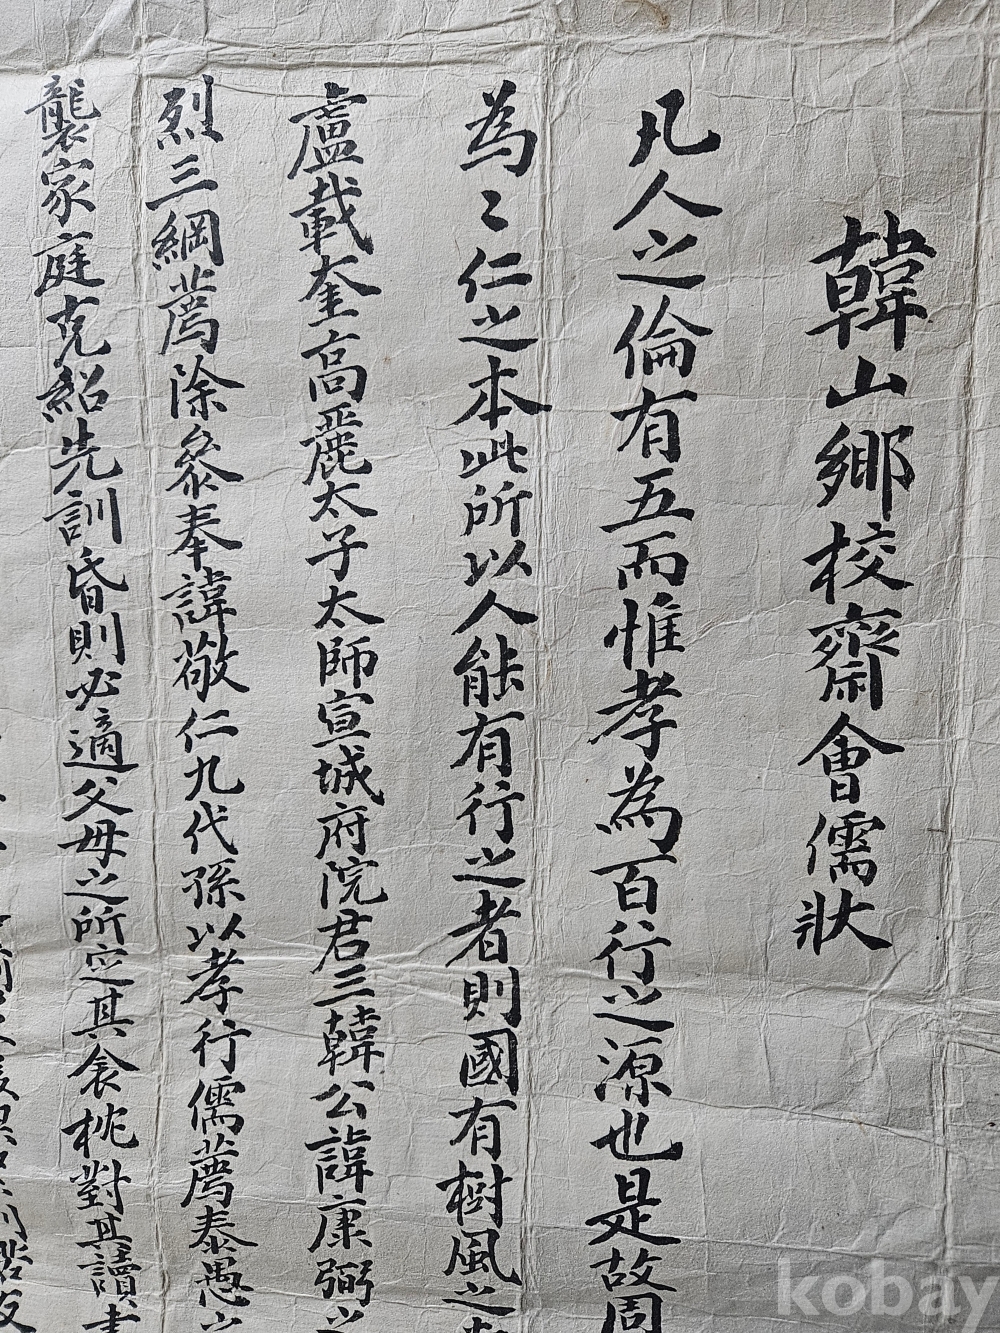 韓山鄉校齋會儒狀
凡人之倫有五而惟孝為百行之源也是故周
為〻仁之本此所以人能有行之者則國有樹風之
盧載奎高麗太子太師宣城府院君三韓公諱康弼之
烈三綱薦除參奉諱敬仁九代孫以孝行儒薦泰愚之
襲家庭克紹先訓昏則必適父母之所定其衾枕對其讀書
kobay